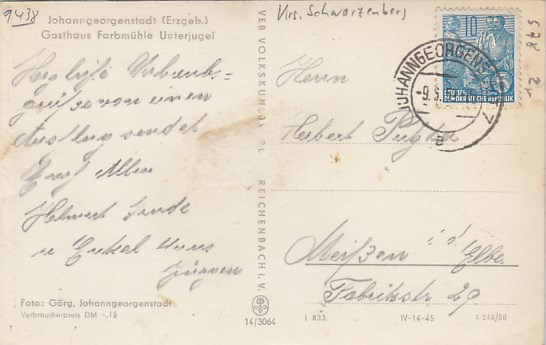 9438
Johanngeorgenstadt (Erzgeb.)
Gasthaus Farbmühle Unterjugel
Krs. Schwarzenberg
578
VEB VOLKSKUNST
REICHENBACH I. V.
10
DEUTSCHE
DEMOKRATISCHE REPUBLIK
JOHANNGEORGENSTADT
-9.5
a
Herzliche Urlaubs=
grüße von einem
Ausflug sendet
Euch Allen
Helmut
u Enkel
Jürgen
Herrn
Herbert
Meißen
Elbe
Fabrikstr 29
Foto: Görg, Johanngeorgenstadt
Verbraucherpreis DM -,15
14/3064
L 833
IV-14-45
A 246/56